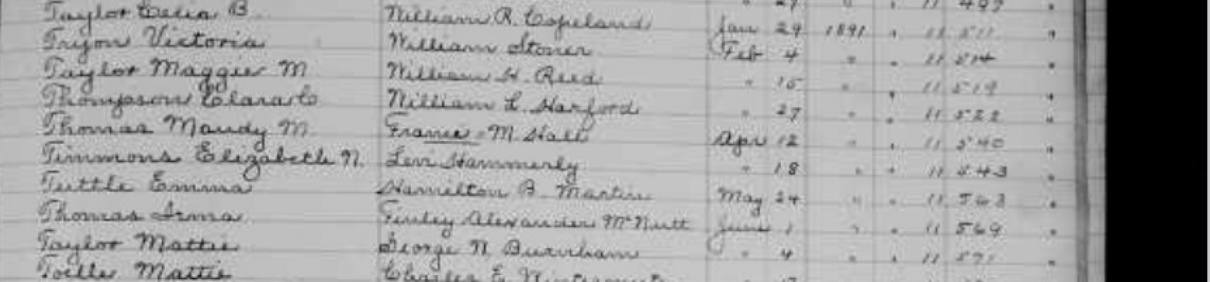 Taylor Celia B. William R. Copeland Jan 29 1891 " 11 511 "
Tryon Victoria William Stoner Feb 4 " " 11 514 "
Taylor Maggie M. William H. Reed " 15 " " 11 519 "
Thompson Clara C William L. Harford " 27 " " 11 522 "
Thomas Maudy M. Francis M. Hall Apr 12 " " 11 540 "
Timmons Elizabeth N. Levi Hammerly " 18 " " 11 543 "
Tuttle Emma Hamilton B. Martin May 24 " " 11 563 "
Thomas Irma Finley Alexander McNutt June 1 " " 11 569 "
Taylor Mattie George N. Burnham " 4 " " 11 571 "
Mattie Charles E.